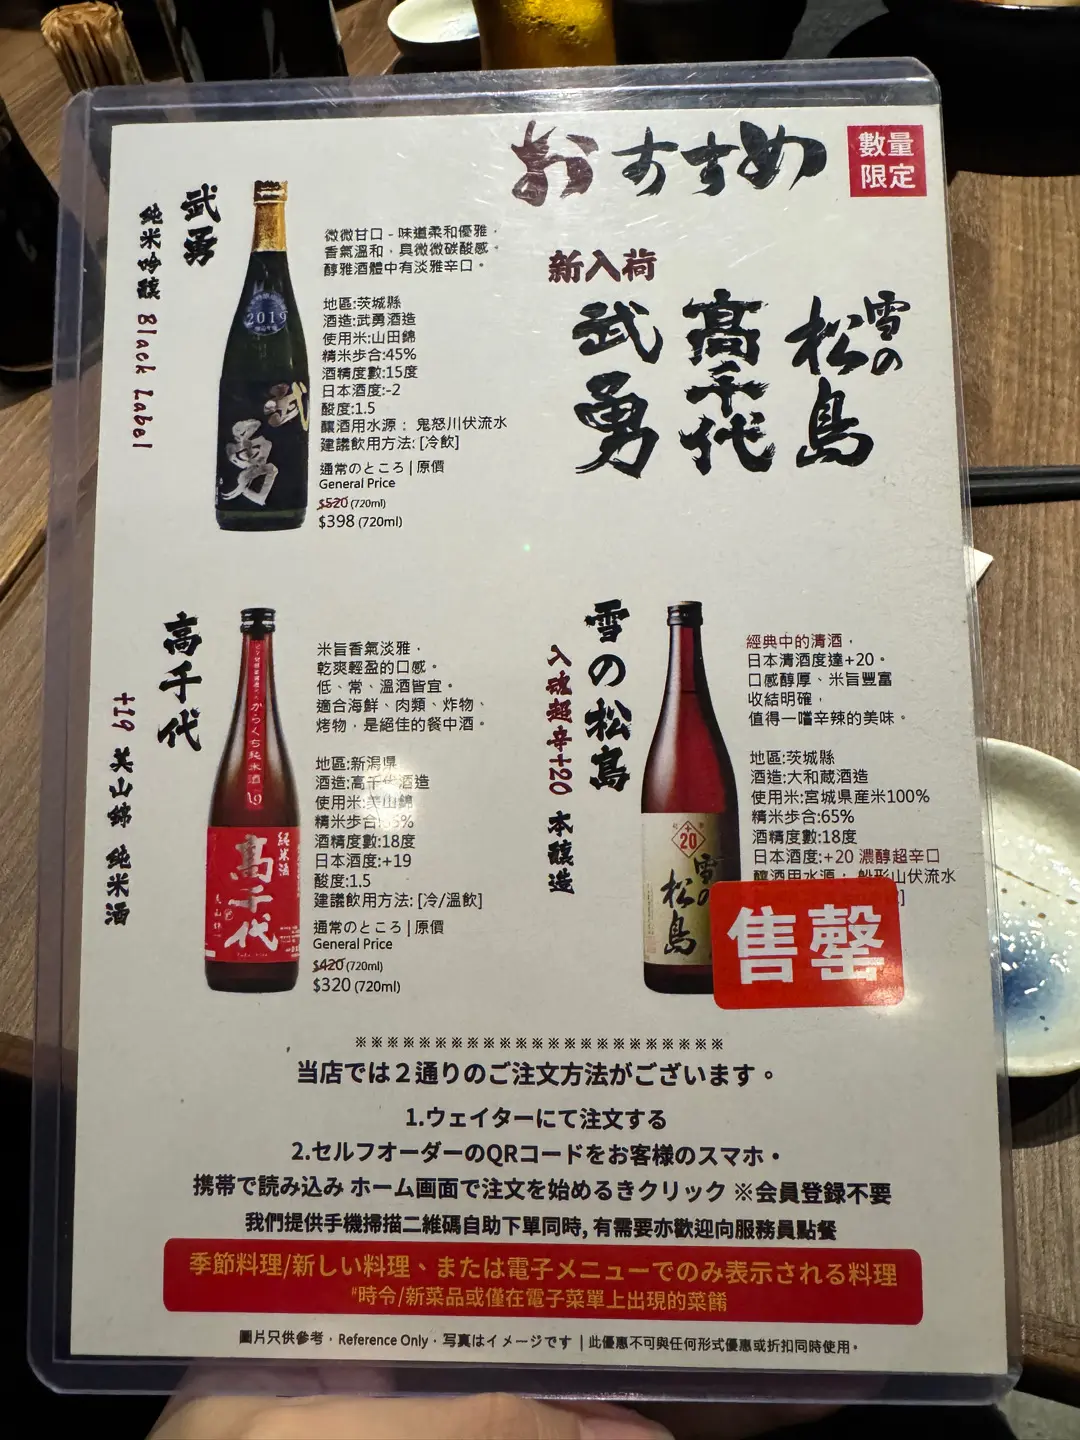 おすすめ
數量
限定
新入荷
武勇
高千代
雪の松島
武勇
純米吟釀 Black Label
2019
武勇
微微甘口 - 味道柔和優雅，
香氣溫和，具微微碳酸感。
醇雅酒體中有淡雅辛口。
地區:茨城縣
酒造:武勇酒造
使用米:山田錦
精米歩合:45%
酒精度數:15度
日本酒度:-2
酸度:1.5
釀酒用水源： 鬼怒川伏流水
建議飲用方法: [冷飲]
通常のところ | 原價
General Price
$520 (720ml)
$398 (720ml)
高千代
+19 美山錦 純米酒
からくち純米酒
19
純米酒
高千代
米旨香氣淡雅，
乾爽輕盈的口感。
低、常、溫酒皆宜。
適合海鮮、肉類、炸物、
烤物，是絕佳的餐中酒。
地區:新潟県
酒造:高千代酒造
使用米:美山錦
精米歩合:5%
酒精度數:18度
日本酒度:+19
酸度:1.5
建議飲用方法: [冷/溫飲]
通常のところ | 原價
General Price
$420 (720ml)
$320 (720ml)
雪の松島
入魂超辛+20 本釀造
+
20
雪の
松島
經典中的清酒，
日本清酒度達+20。
口感醇厚、米旨豐富
收結明確，
值得一嚐辛辣的美味。
地區:茨城縣
酒造:大和蔵酒造
使用米:宮城県産米100%
精米歩合:65%
酒精度數:18度
日本酒度:+20 濃醇超辛口
釀酒用水源： 船形山伏流水
]
售罄
※※※※※※※※※※※※※※※※※※※※※※※※
当店では２通りのご注文方法がございます。
1.ウェイターにて注文する
2.セルフオーダーのQRコードをお客様のスマホ・
携帯で読み込み ホーム画面で注文を始めるきクリック ※会員登録不要
我們提供手機掃描二維碼自助下單同時, 有需要亦歡迎向服務員點餐
季節料理/新しい料理、または電子メニューでのみ表示される料理
#時令/新菜品或僅在電子菜單上出現的菜餚
圖片只供參考・Reference Only・写真はイメージです | 此優惠不可與任何形式優惠或折扣同時使用。